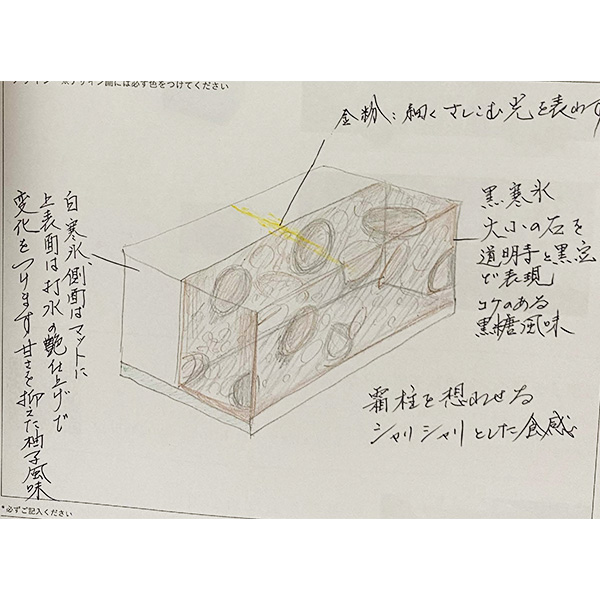 デザイン ※デザイン画には必ず色をつけてください
金粉：細くさしこむ光を表わす
黒寒氷
大小の石を
道明寺と黒豆
で表現
コクのある
黒糖風味
霜柱を想わせる
シャリシャリとした食感
白寒氷、側面はマットに
上表面は打水の艶仕上げで
変化をつけます 甘さを抑えた柚子風味
*必ずご記入ください